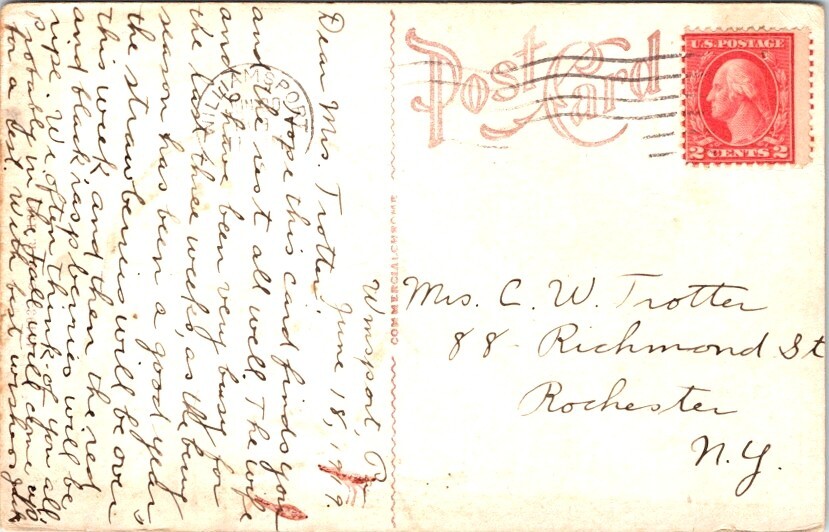 Wmsport, Pa
June 18, 1919.
Dear Mrs. Trotter:
Hope this card finds you
and the rest all well. The wife
and I have been very busy for
the last three weeks, as the berry
season has been a good
the strawberries will be over
this week and then the red
and black raspberries will be
ripe. We often think of you all,
probably in the Fall will come up
for a With best wishes
AMSPORT
COMMERCIALCHROME
Post Card
U.S. POSTAGE
2 CENTS 2
Mrs. C. W. Trotter
88 Richmond St
Rochester
N.Y.